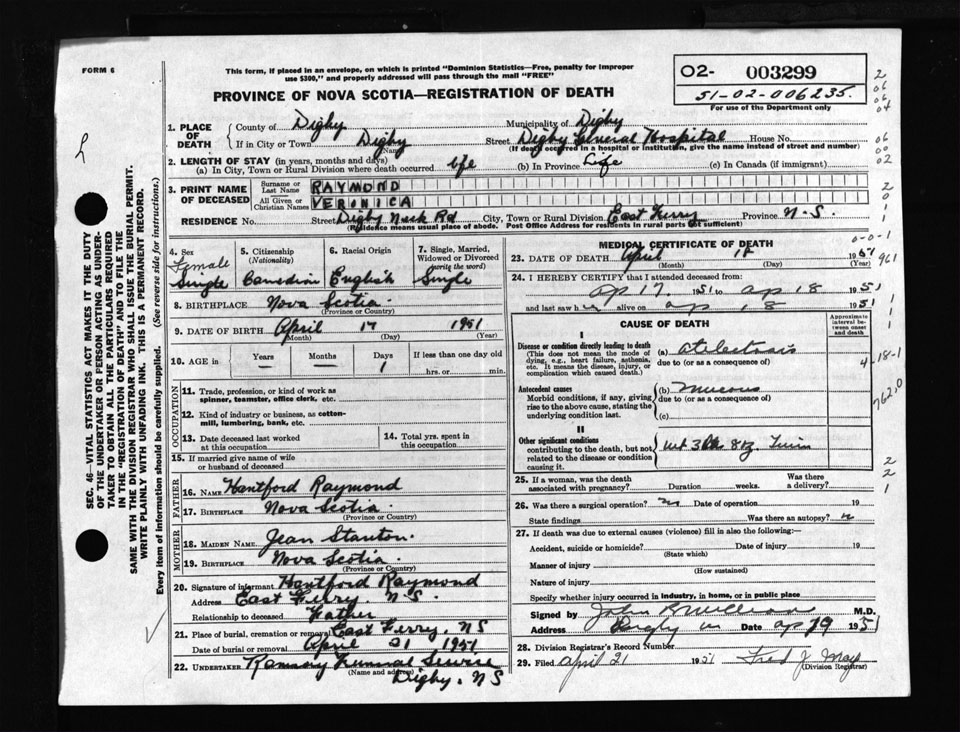 FORM 6
This form, if placed in an envelope, on which is printed "Dominion Statistics—Free, penalty for improper
use $300," and properly addressed will pass through the mail "FREE"
PROVINCE OF NOVA SCOTIA—REGISTRATION OF DEATH
O2- 003299
51-02-006235.
For use of the Department only
SEC. 46—VITAL STATISTICS ACT MAKES IT THE DUTY
OF THE UNDERTAKER OR PERSON ACTING AS UNDER-
TAKER TO OBTAIN ALL THE PARTICULARS REQUIRED
IN THE "REGISTRATION OF DEATH" AND TO FILE THE
SAME WITH THE DIVISION REGISTRAR WHO SHALL ISSUE THE BURIAL PERMIT.
WRITE PLAINLY WITH UNFADING INK. THIS IS A PERMANENT RECORD.
Every item of information should be carefully supplied. (See reverse side for instructions.)
1. PLACE OF DEATH
County of Digby Municipality of Digby
If in City or Town Digby Street Digby General Hospital House No.
(Name) (If death occurred in a hospital or institution, give the name instead of street and number)
2. LENGTH OF STAY (in years, months and days)
(a) In City, Town or Rural Division where death occurred life (b) In Province Life (c) In Canada (if immigrant)
3. PRINT NAME OF DECEASED
Surname or Last Name RAYMOND
All Given or Christian Names VERONICA
RESIDENCE No. Street Digby Neck Rd City, Town or Rural Division East Ferry Province N.S.
(Residence means usual place of abode. Post Office Address for residents in rural parts not sufficient)
4. Sex
Female
Single
5. Citizenship (Nationality)
Canadian
6. Racial Origin
English
7. Single, Married, Widowed or Divorced (write the word)
Single
8. BIRTHPLACE Nova Scotia
(Province or Country)
9. DATE OF BIRTH April 17 1951
(Month) (Day) (Year)
10. AGE in Years Months Days If less than one day old
1 hrs. or min.
OCCUPATION
11. Trade, profession, or kind of work as
spinner, teamster, office clerk, etc.
12. Kind of industry or business, as cotton-
mill, lumbering, bank, etc.
13. Date deceased last worked
at this occupation
14. Total yrs. spent in
this occupation
15. If married give name of wife
or husband of deceased
FATHER
16. NAME Hantford Raymond
17. BIRTHPLACE Nova Scotia
(Province or Country)
MOTHER
18. MAIDEN NAME Jean Stanton.
19. BIRTHPLACE Nova Scotia.
(Province or Country)
20. Signature of informant Hantford Raymond
Address East Ferry N.S.
Relationship to deceased Father
21. Place of burial, cremation or removal East Ferry, NS
Date of burial or removal April 21 1951
22. UNDERTAKER Funeral Service
(Name and address)
Digby, NS
MEDICAL CERTIFICATE OF DEATH
23. DATE OF DEATH April 18 1951
(Month) (Day) (Year)
24. I HEREBY CERTIFY that I attended deceased from:
Ap 17. 1951 to ap 18 1951
and last saw h alive on ap 18 1951
CAUSE OF DEATH
Approximate interval between onset and death
I
Disease or condition directly leading to death
(This does not mean the mode of
dying, e.g., heart failure, asthenia,
etc. It means the disease, injury, or
complication which caused death.)
(a) atelectasis
due to (or as a consequence of)
Antecedent causes
Morbid conditions, if any, giving
rise to the above cause, stating the
underlying condition last.
(b) Mucous
due to (or as a consequence of)
(c)
II
Other significant conditions
contributing to the death, but not
related to the disease or condition
causing it.
wt 3 lb 8 oz Twin
25. If a woman, was the death
associated with pregnancy? Duration weeks. Was there a delivery?
26. Was there a surgical operation? no Date of operation 19
State findings Was there an autopsy? n
27. If death was due to external causes (violence) fill in also the following:—
Accident, suicide or homicide? Date of injury 19
(State which)
Manner of injury
(How sustained)
Nature of injury
Specify whether injury occurred in industry, in home, or in public place
Signed by John R M.D.
Address Digby Date ap 19 1951
28. Division Registrar's Record Number
29. Filed April 21 1951 Fred J. May
(Division Registrar)
2
06
06
04
06
00
02
2
0
1
0-0-1
961
1
1
1
4-18-1
762.0
2
2
1